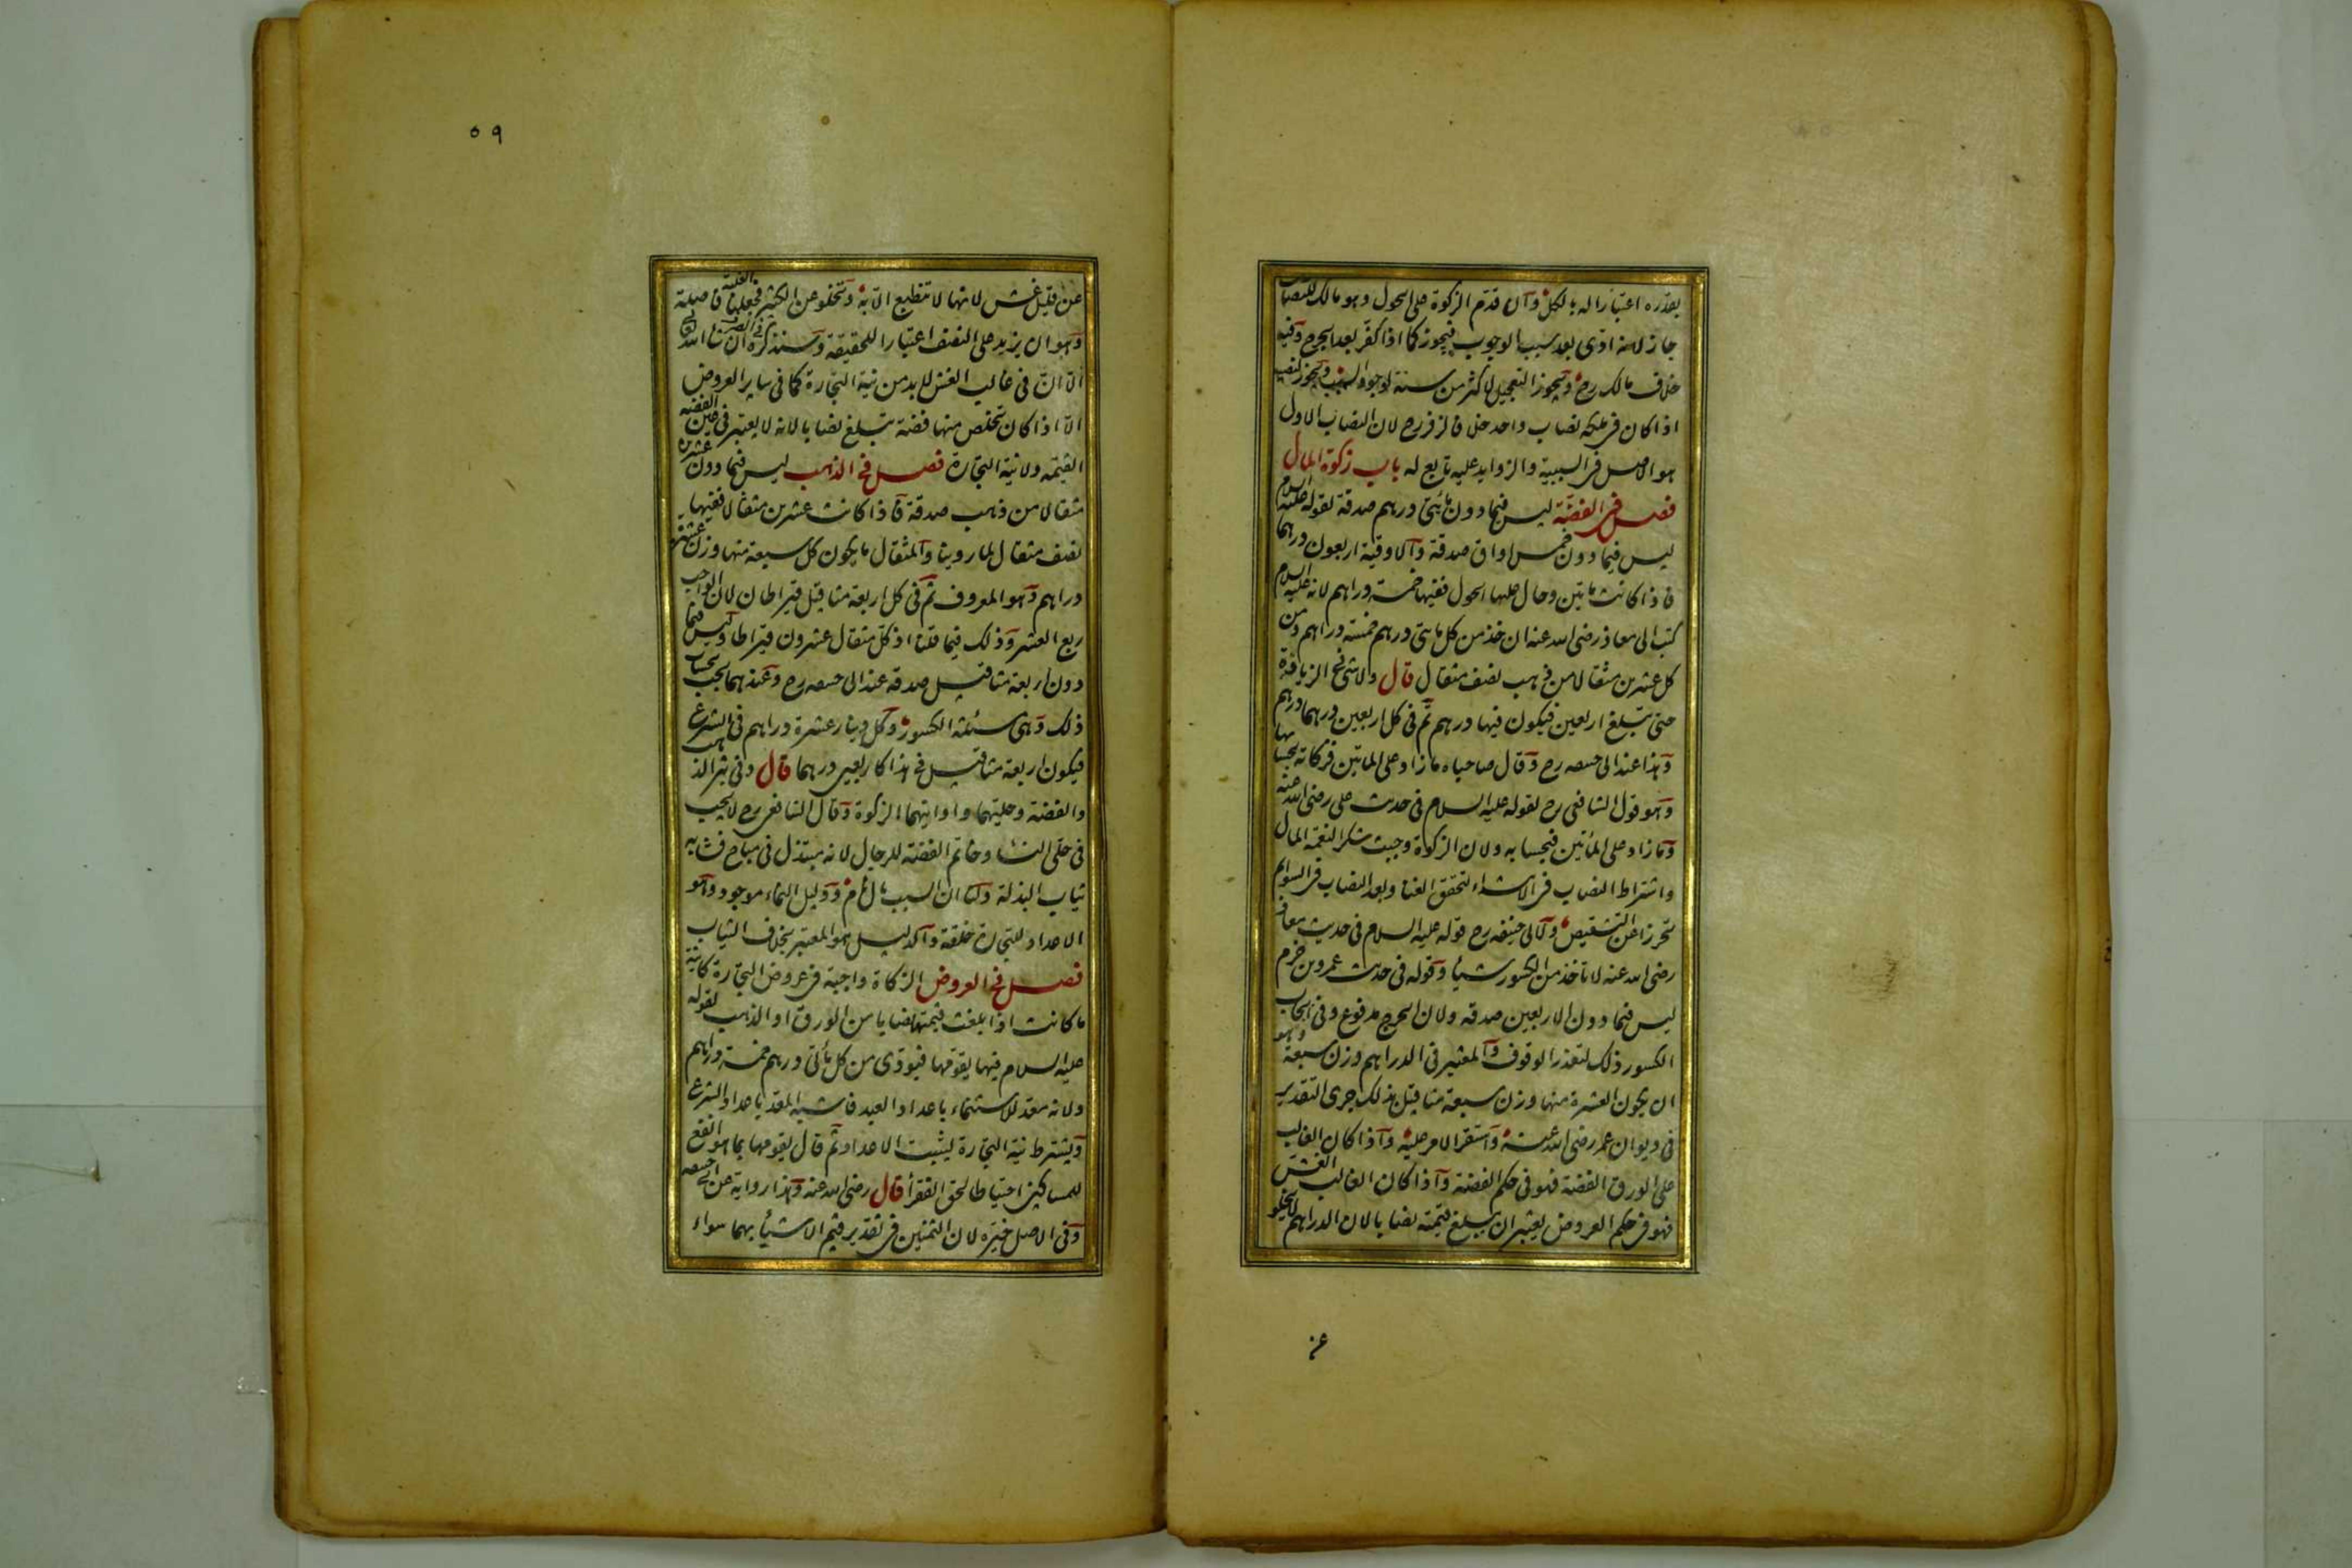 بقدره اعتبارا له بالكل وان قدم الزكوة على الحول وهو مالك للنصاب
جاز لانه ادى بعد سبب الوجوب فيجوز كما اذا كفر بعد الجرح وفيه
خلاف مالك رح ويجوز التعجيل لاكثر من سنة لوجود السبب ويجوز لنصب
اذا كان فى ملكه نصاب واحد خلافا لزفر رح لان النصاب الاول
هو الاصل فى السببية والزوايد عليه تابع له باب زكوة المال
فصل فى الفضة ليس فيما دون مأتى درهم صدقة لقوله عليه السلام
ليس فيما دون خمس اواق صدقة والاوقية اربعون درهما
فاذا كانت مأتين وحال عليها الحول ففيها خمسة دراهم لانه عليه السلام
كتب الى معاذ رضى الله عنه ان خذ من كل مأتى درهم خمسة دراهم ومن
كل عشرين مثقالا من ذهب نصف مثقال قال ولا شئ فى الزيادة
حتى تبلغ اربعين فيكون فيها درهم ثم فى كل اربعين درهما درهم
وهذا عند ابى حنيفه رح وقال صاحباه ما زاد على المأتين فزكاته بحسابها
وهو قول الشافعى رح لقوله عليه السلام فى حديث على رضى الله عنه
وما زاد على المأتين فبحسابه ولان الزكوة وجبت شكرا لنعمة المال
واشتراط النصاب فى الابتداء لتحقق الغنا وبعد النصاب فى السوايم
تحرزا عن التشقيص ولابى حنيفه رح قوله عليه السلام فى حديث معاذ
رضى الله عنه لا تاخذ من الكسور شيأ وقوله فى حديث عمرو بن حزم
ليس فيما دون الاربعين صدقه ولان الحرج مدفوع وفى ايجاب
الكسور ذلك لتعذر الوقوف والمعتبر فى الدراهم وزن سبعة وهو
ان يكون العشرة منها وزن سبعة مثاقيل بذلك جرى التقدير
فى ديوان عمر رضى الله عنه واستقر الامر عليه واذا كان الغالب
على الورق الفضة فهو فى حكم الفضة واذا كان الغالب الغش
فهو فى حكم العروض يعتبر ان يبلغ قيمته نصابا لان الدراهم لا يخلو
عن قليل غش لانها لا تنطبع الا به وتخلو عن الكثير فجعلنا الغلبة فاصلة
وهو ان يزيد على النصف اعتبارا للحقيقة وسنذكره فى الصرف ان شا الله تعالى
الا ان فى غالب الغش لا بد من نية التجارة كما فى ساير العروض
الا اذا كان تخلص منها فضة تبلغ نصابا لانه لا يعتبر فى عين الفضة
القيمه ولا نية التجارة فصل فى الذهب ليس فيما دون عشرين
مثقالا من ذهب صدقة فاذا كانت عشرين مثقالا ففيها
نصف مثقال لما روينا والمثقال ما يكون كل سبعة منها وزن عشرة
دراهم وهو المعروف ثم فى كل اربعة مثاقيل قيراطان لان الواجب
ربع العشر وذلك فيما قلنا اذ كل مثقال عشرون قيراطا وليس فيما
دون اربعة مثاقيل صدقه عند ابى حنيفه رح وعندهما يجب بحساب
ذلك وهى مسئلة الكسور وكل دينار عشرة دراهم فى الشرع
فيكون اربعة مثاقيل فى هذا كاربعين درهما قال وفى تبر الذهب
والفضة وحليهما واوانيهما الزكوة وقال الشافعى رح لا يجب
فى حلى النسا وخاتم الفضة للرجال لانه مبتذل فى مباح فشابه
ثياب البذلة ولنا ان السبب مال نام ودليل النماء موجود وهو
الاعداد للتجارة خلقة والدليل هو المعتبر بخلاف الثياب
فصل فى العروض الزكاة واجبة فى عروض التجارة كاينة
ما كانت اذا بلغت قيمتها نصابا من الورق او الذهب لقوله
عليه السلام فيها يقومها فيؤدى من كل مأتى درهم خمسة دراهم
ولانه معد للاستنماء باعداد العبد فاشبه المعد باعداد الشرع
ويشترط نية التجارة ليثبت الاعداد ثم قال يقومها بما هو انفع
للمساكين احتياطا لحق الفقرأ قال رضى الله عنه وهذا رواية عن ابى حنيفه
وفى الاصل خيره لان الثمنين فى تقدير قيم الاشيأ بهما سواء
٥٩